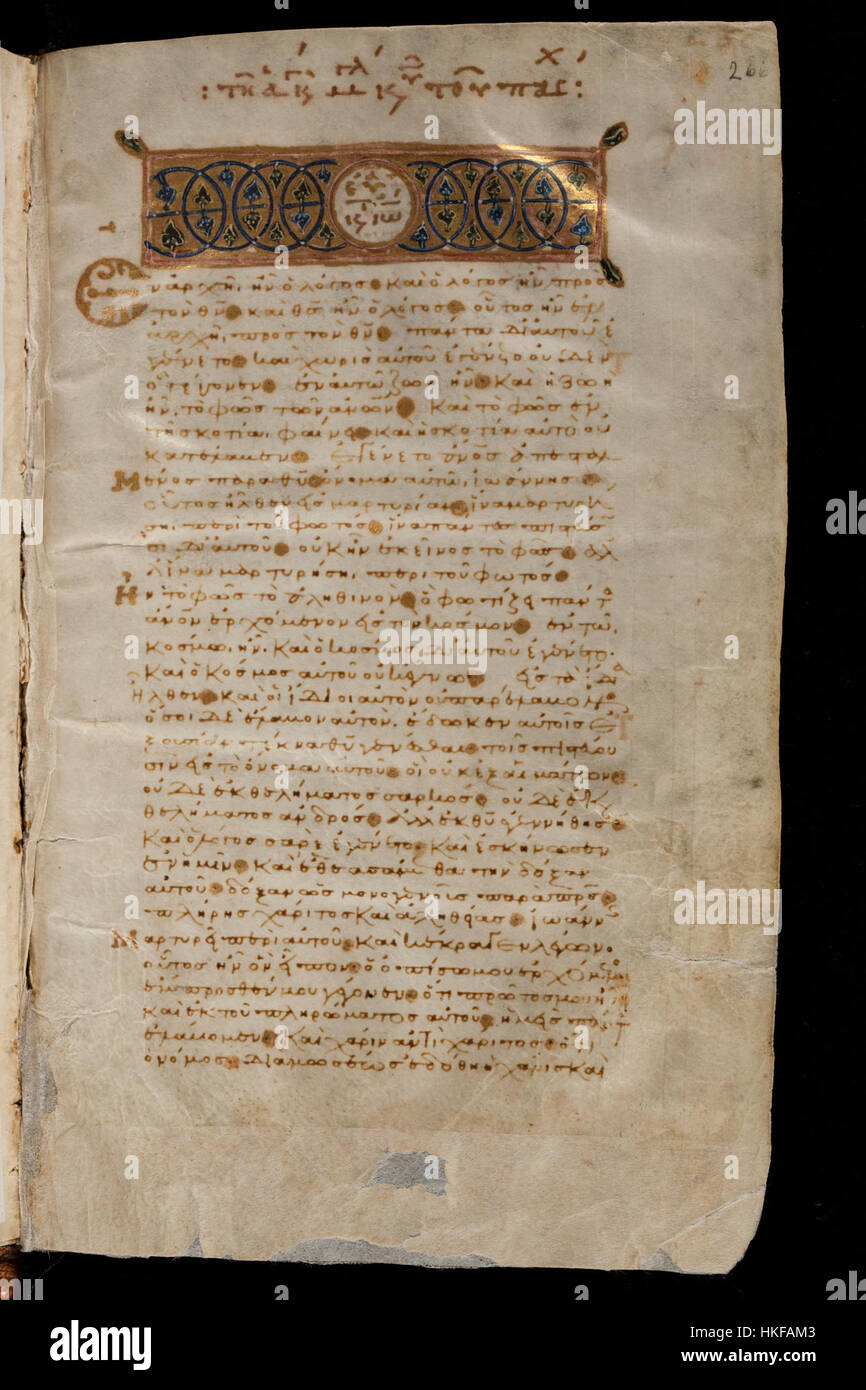 : τῇ ἁγίᾳ κ̣ μ κυ τοῦ πασχ :
ν ἀρχῇ ἦν ὁ λόγος· καὶ ὁ λόγος ἦν πρὸς
τὸν θ̅ν· καὶ θ̅ς ἦν ὁ λόγος· οὗτος ἦν ἐν
ἀρχῇ πρὸς τὸν θ̅ν· πάντα δι αὐτοῦ ἐ
γένετο· καὶ χωρὶς αὐτοῦ ἐγένετο οὐδὲ ἓν
ὃ γέγονεν· ἐν αὐτῶ ζωὴ ἦν· καὶ ἡ ζωὴ
ἦν τὸ φῶς τῶν ἀν̅ων· καὶ τὸ φῶς ἐν
τῇ σκοτία φαίνει· καὶ ἡ σκοτία αὐτὸ οὐ
κατέλαβεν· Ἐγένετο ἀν̅ος ἀπεσταλ
Μένος παρὰ θ̅υ· ὄνομα αὐτῶ ἰωάννης·
οὗτος ἦλθεν εἰς μαρτυρίαν· ἵνα μαρτυρή
ση περὶ τοῦ φωτός· ἵνα πάντες πιστεύσω
σι δι αὐτοῦ· οὐκ ἦν ἐκεῖνος τὸ φῶς· ἀλ
λ ἵνα μαρτυρήση περὶ τοῦ φωτός·
Ἦν τὸ φῶς τὸ ἀληθινὸν· ὃ φωτίζει πάντα
ἀν̅ον ἐρχόμενον εἰς τὸν κόσμον· ἐν τῶ
κόσμω ἦν· καὶ ὁ κόσμος δι αὐτοῦ ἐγένετο·
καὶ ὁ κόσμος αὐτὸν οὐκ ἔγνω· εἰς τὰ ἴδια
Ἦλθεν· καὶ οἱ ἴδιοι αὐτὸν οὐ παρέλαβον·
ὅσοι δὲ ἔλαβον αὐτόν· ἔδωκεν αὐτοῖς ἐ
ξουσίαν τέκνα θ̅υ γενέσθαι· τοῖς πιστεύου
σιν εἰς τὸ ὄνομα αὐτοῦ· οἳ οὐκ ἐξ αἱμάτων·
οὐδὲ ἐκ θελήματος σαρκός· οὐδὲ ἐκ
θελήματος ἀνδρός· ἀλλ ἐκ θ̅υ ἐγεννήθησαν·
Καὶ ὁ λόγος σὰρξ ἐγένετο· καὶ ἐσκήνωσεν
ἐν ἡμῖν· καὶ ἐθεασάμεθα τὴν δόξαν
αὐτοῦ· δόξαν ὡς μονογενοῦς παρὰ π̅ρς·
πλήρης χάριτος καὶ ἀληθείας· ἰωάννης
Μαρτυρεῖ περὶ αὐτοῦ· καὶ κέκραγεν λέγων·
οὗτος ἦν ὃν εἶπον· ὁ ὀπίσω μου ἐρχόμενος
ἔμπροσθέν μου γέγονεν· ὅτι πρῶτός μου ἦν
καὶ ἐκ τοῦ πληρώματος αὐτοῦ· ἡμεῖς πάντες
ἐλάβομεν· καὶ χάριν ἀντὶ χάριτος· ὅτι
ὁ νόμος· διὰ μωσέως ἐδόθη· ἡ χάρις καὶ
alamy stock photo
HKFAM3
www.alamy.com